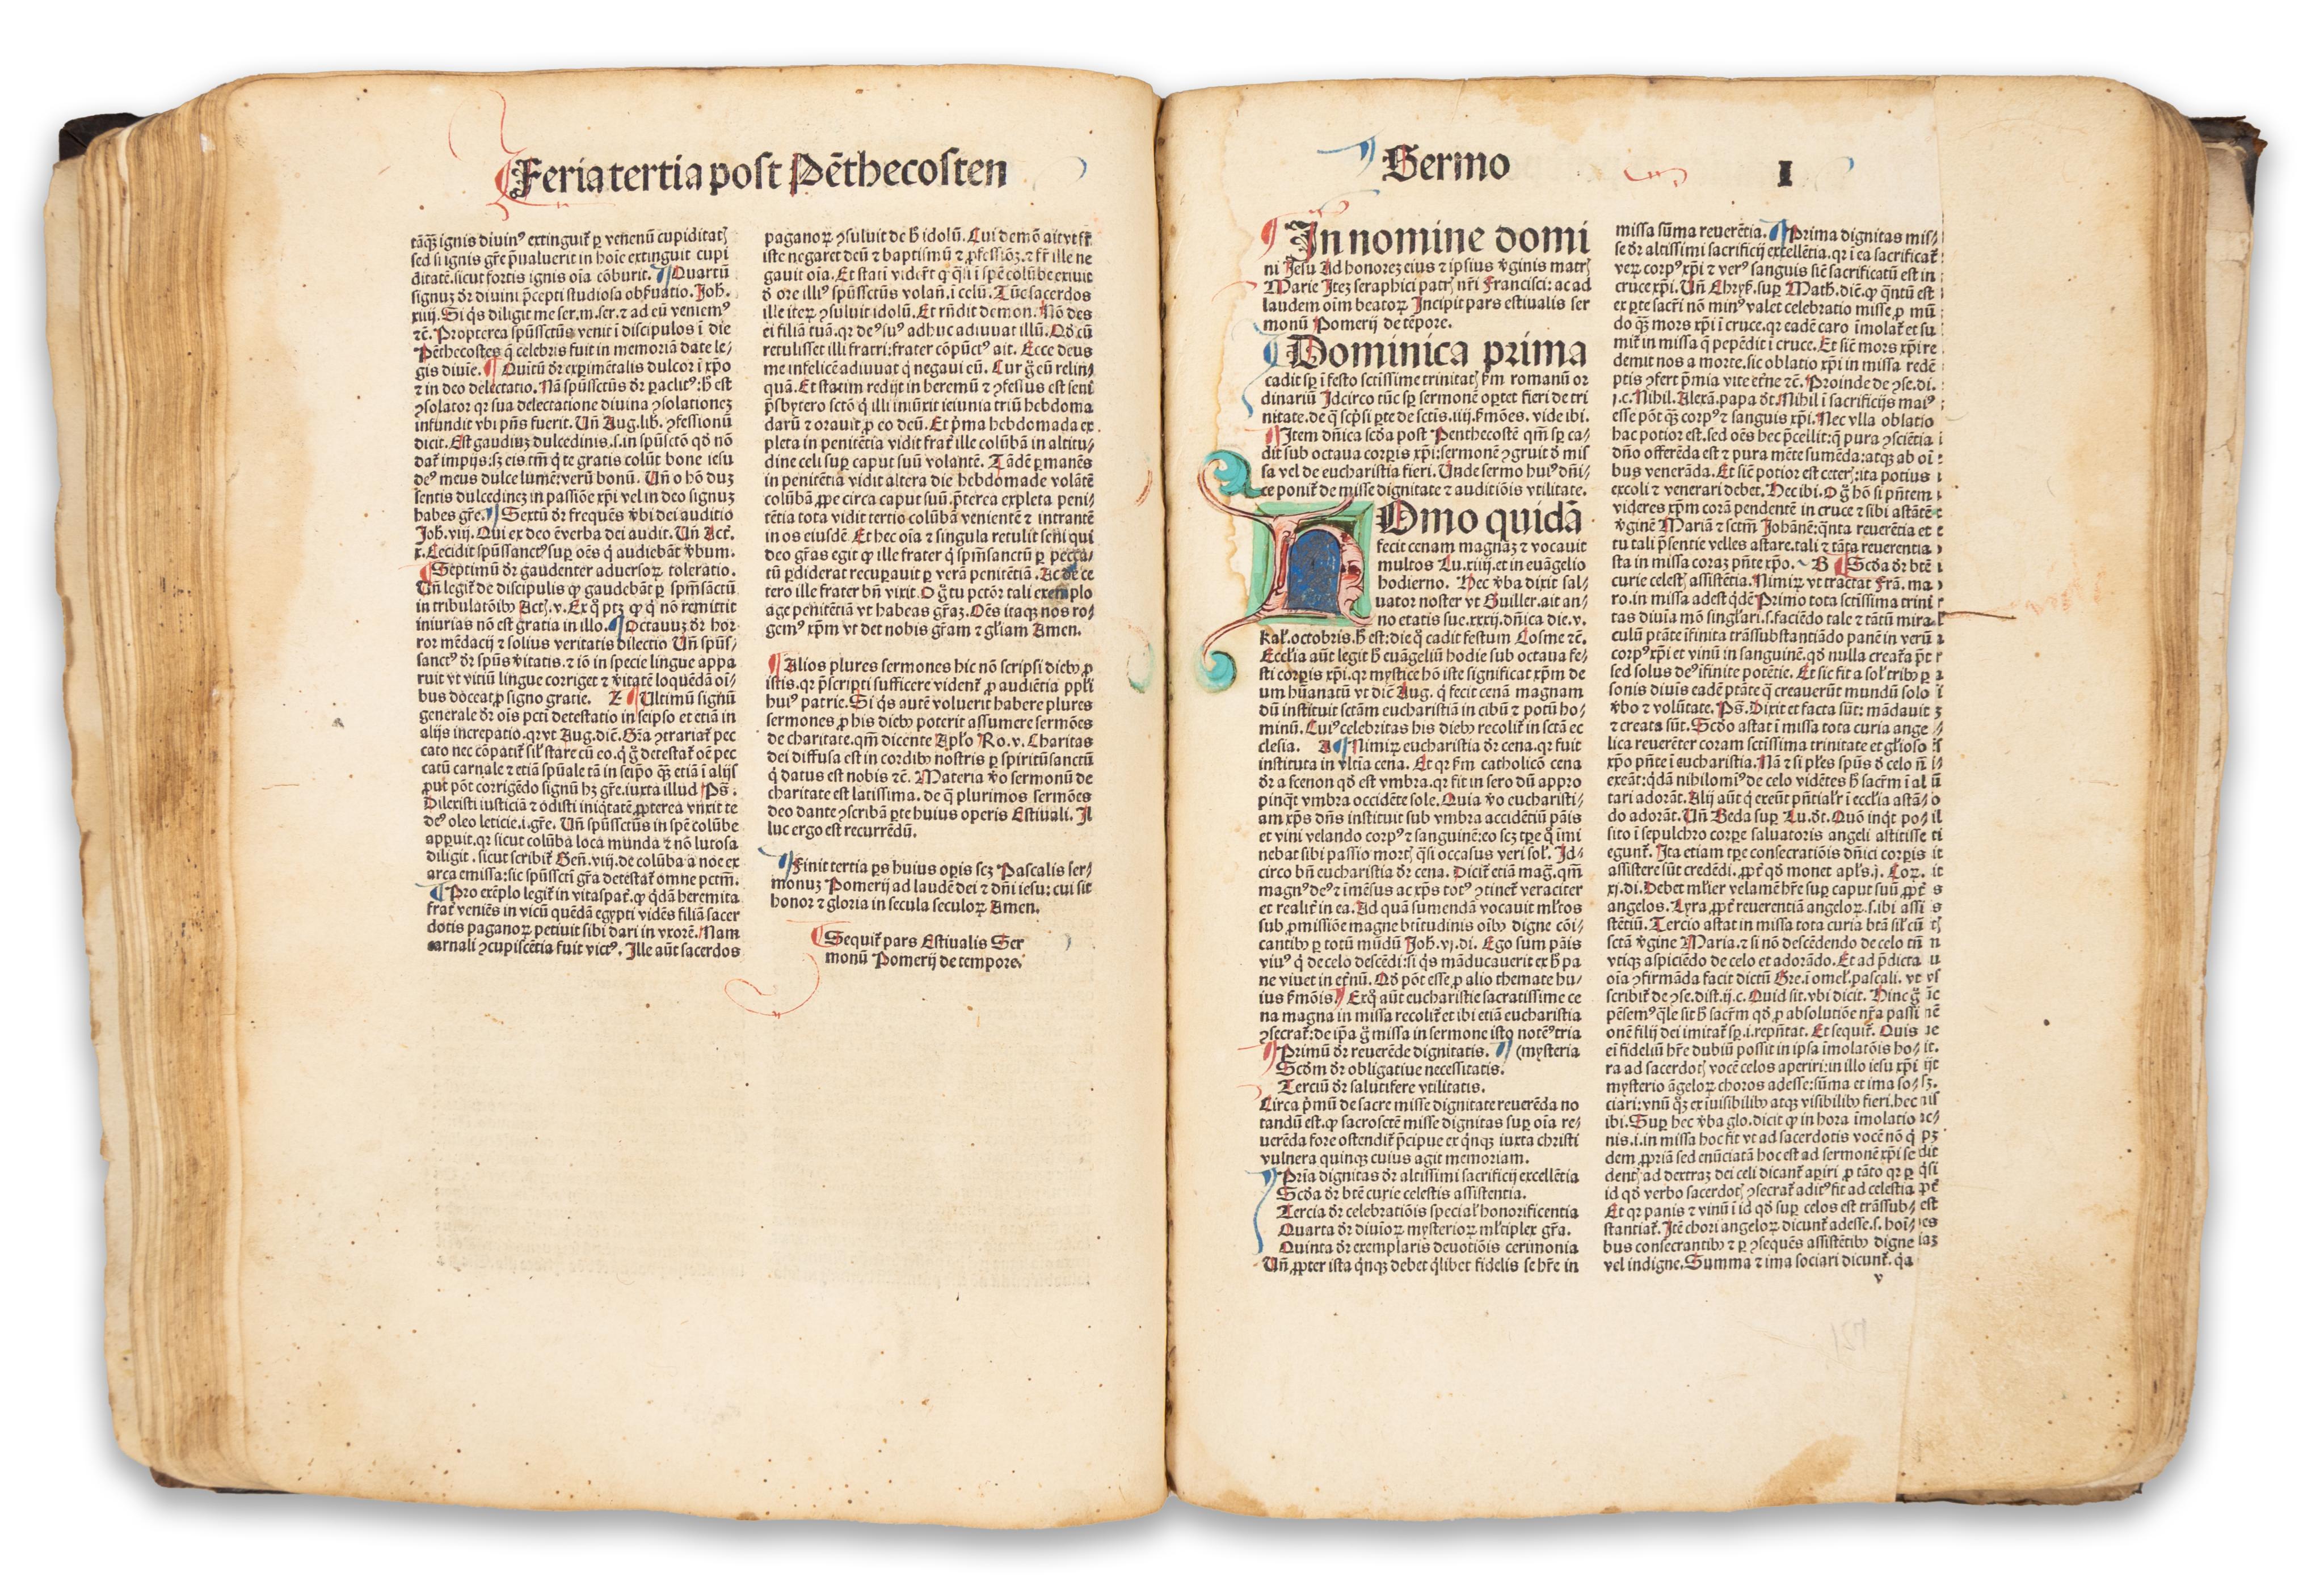 Feria tertia post Pēthecosten
tāq̄ꝫ ignis diuinꝰ extinguit᷑ ꝑ venenū cupiditatꝭ
sed si ignis gr̄e p̄ualuerit in hoīe extinguit cupi
ditatē. sicut fortis ignis oīa cōburit. ¶ Quartū
signuꝫ dr̄ diuini p̄cepti studiosa obẜuatio. Joh.
xiiij. Si q̇s diligit me ser. m. ser. ⁊ ad eū veniemꝰ
⁊c̄. Propterea spūssctūs venit ī discipulos ī die
Pēthecostes q̄ celebris fuit in memoriā date le/
gis diuīe. ¶ Quītū dr̄ exꝑimētalis dulcor ī xp̄o
⁊ in deo delectatio. Nā spūssctūs dr̄ paclitꝰ: h̄ est
ꝯsolator qr̄ sua delectatione diuina ꝯsolationeꝫ
infundit vbi pn̄s fuerit. Un̄ Aug. lib. ꝯfessionū
dicit. Est gaudiuꝫ dulcedinis. s. in spūsctō qd̄ nō
dat᷑ impijs: sꝫ eis tm̄ q̇ te gratis colūt bone iesu
deꝰ meus dulce lumē: verū bonū. Un̄ o hō duꝫ
sentis dulcedineꝫ in passiōe xp̄i vel in deo signuꝫ
habes gr̄e. ¶ Sextū dr̄ frequēs v̄bi dei auditio
Joh. viij. Qui ex deo ē verba dei audit. Un̄ Act᷑.
x. Cecidit spūssanctꝰ suꝑ oēs q̇ audiebāt v̄bum.
¶ Septimū dr̄ gaudenter aduersoꝝ toleratio.
Un̄ legit᷑ de discipulis ꝙ gaudebāt ꝑ spm̄sanctū
in tribulatōibꝰ Actꝭ. v. Ex q̊ ptꝫ ꝙ q̇ nō remittit
iniurias nō est gratia in illo. ¶ Octauuꝫ dr̄ hor
ror mēdacij ⁊ solius veritatis dilectio Un̄ spūs/
sanctꝰ dr̄ spūs v̄itatis. ⁊ iō in specie lingue appa
ruit vt vitiū lingue corriget ⁊ v̄itatē loquēdā oī/
bus doceat. ꝓ signo gratie. Z ¶ Ultimū signū
generale dr̄ oīs pctī detestatio in seipso et etiā in
alijs increpatio. qr̄ vt Aug. dic̄. Gr̄a ꝯtrariat᷑ pec
cato nec cōpatit᷑ sil̄ stare cū eo. q̇ ḡ detestat᷑ oē pec
catū carnale ⁊ etiā spūale tā in seip̄o q̄ꝫ etiā ī alijs
ꝓut pōt corrigēdo signū hꝫ gr̄e. iuxta illud Ps̄.
Dilexisti iusticiā ⁊ odisti iniq̇tatē. ꝓpterea vnxit te
deꝰ oleo leticie. i. gr̄e. Un̄ spūssctūs in spē colūbe
apparuit. qr̄ sicut colūba loca munda ⁊ nō lutosa
diligit. sicut scribit᷑ Gen̄. viij. de colūba a noe ex
arca emissa: sic spūssctī gr̄a detestat᷑ omne pctm̄.
¶ Pro exēplo legit᷑ in vitaspat᷑. ꝙ q̇dā heremita
frat᷑ veniēs in vicū quēdā egypti vidēs filiā sacer
dotis paganoꝝ petiuit sibi dari in vxorē. Nam
carnali ꝯcupiscētia fuit victꝰ. Ille aūt sacerdos
paganoꝝ ꝯsuluit de h̄ idolū. Cui demō ait vt fr̄
iste negaret deū ⁊ baptismū ⁊ ꝓfessiōꝫ. ⁊ fr̄ ille ne
gauit oīa. Et stati vider̄t ꝙ q̄si ī spē colūbe exiuit
d̄ ore illiꝰ spūssctūs volan̄. ī celū. Tūc sacerdos
ille iteꝝ ꝯsuluit idolū. Et rn̄dit demon. Nō des
ei filiā tuā. qr̄ deꝰ suꝰ adhuc adiuuat illū. Qd̄ cū
retulisset illi fratri: frater cōpūctꝰ ait. Ecce deus
me infelicē adiuuat q̄ negaui eū. Cur ḡ eū relin
quā. Et statim redijt in heremū ⁊ ꝯfessus est seni
p̄sbytero sctō q̇ illi iniūxit ieiunia triū hebdoma
darū ⁊ orauit ꝓ eo deū. Et p̄ma hebdomada ex
pleta in penitētia vidit frat᷑ ille colūbā in altitu/
dine celi suꝑ caput suū volantē. Tādē ꝑmanēs
in penitētia vidit altera die hebdomade volātē
colūbā ꝓpe circa caput suū. p̄terea expleta peni/
tētia tota vidit tertio colūbā venientē ⁊ intrantē
in os eiusdē. Et hec oīa ⁊ singula retulit seni qui
deo gr̄as egit ꝙ ille frater q̇ spm̄sanctū ꝑ pecca/
tū ꝑdiderat recuꝑauit ꝑ verā penitētiā. Ac de ce
tero ille frater bn̄ vixit. O ḡ tu pctōr tali exemplo
age penitētiā vt habeas gr̄aꝫ. Oēs itaqꝫ nos ro/
gemꝰ xp̄m vt det nobis gr̄am ⁊ gl̄iam Amen.
¶ Alios plures sermones hic nō scripsi diebꝰ ꝓ
istis. qr̄ p̄scripti sufficere vident᷑ ꝓ audiētia pp̄li
huiꝰ patrie. Si q̇s autē voluerit habere plures
sermones ꝓ his diebꝰ poterit assumere sermōes
de charitate. qm̄ dicente Apl̄o Ro. v. Charitas
dei diffusa est in cordibꝰ nostris ꝑ spiritūsanctū
q̇ datus est nobis ⁊c̄. Materia v̄o sermonū de
charitate est latissima. de q̄ plurimos sermōes
deo dante ꝯscribā ꝑte huius operis Estiuali. Il
luc ergo est recurrēdū.
¶ Finit tertia ꝑs huius oꝑis scꝫ Pascalis ser/
monuꝫ Pomerij ad laudē dei ⁊ dn̄i iesu: cui sit
honor ⁊ gloria in secula seculoꝝ Amen.
¶ Sequit᷑ pars Estiualis Ser
monū Pomerij de tempore.
Sermo I
¶ In nomine domi
ni Jesu Ad honoreꝫ eius ⁊ ipsius v̄ginis matrꝭ
Marie Iteꝫ seraphici patrꝭ nr̄i Francisci: ac ad
laudem oīm beatoꝝ Incipit pars estiualis ser
monū Pomerij de tēpore.
¶ Dominica prima
cadit sꝑ ī festo sctissime trinitatꝭ ẜm romanū or
dinariū Idcirco tūc sꝑ sermonē oꝑtet fieri de tri
nitate. de q̄ scp̄si ꝑte de sctis. iiij. ẜmōes. vide ibi.
¶ Item dn̄ica scd̄a post Penthecostē qm̄ sꝑ ca/
dit sub octaua corꝑis xp̄i: sermonē ꝯgruit d̄ mis
sa vel de eucharistia fieri. Unde sermo huiꝰ dn̄i/
ce ponit᷑ de misse dignitate ⁊ auditiōis vtilitate.
HOmo quidā
fecit cenam magnaꝫ ⁊ vocauit
multos Lu. xiiij. et in euāgelio
hodierno. Hec v̄ba dixit sal/
uator noster vt Guiller. ait an/
no etatis sue. xxxij. dn̄ica die. v.
kal̄. octobris. h̄ est: die q̇ cadit festum Cosme ⁊c̄.
Eccl̄ia aūt legit h̄ euāgeliū hodie sub octaua fe/
sti corꝑis xp̄i. qr̄ mystice hō iste significat xp̄m de
um hūanatū vt dic̄ Aug. q̇ fecit cenā magnam
dū instituit sctām eucharistiā in cibū ⁊ potū ho/
minū. Cuiꝰ celebritas his diebꝰ recolit᷑ in sctā ec
clesia. A ¶ Nimiꝝ eucharistia dr̄ cena. qr̄ fuit
instituta in vltīa cena. Et qr̄ ẜm catholicō cena
dr̄ a scenon qd̄ est vmbra. qr̄ fit in sero dū appro
pinq̄t vmbra occidēte sole. Quia v̄o eucharisti/
am xp̄s dn̄s instituit sub vmbra accidētiū pāis
et vini velando corpꝰ ⁊ sanguinē: eo scꝫ tꝑe q̊ īmi
nebat sibi passio mortꝭ q̄si occasus veri sol᷑. Id/
circo bn̄ eucharistia dr̄ cena. Dicit᷑ etiā maḡ. qm̄
magnꝰ deꝰ ⁊ īmēsus ac xp̄s totꝰ ꝯtinet᷑ veraciter
et realit᷑ in ea. Ad quā sumendā vocauit ml̄tos
sub ꝓmissiōe magne btītudinis oībꝰ digne cōi/
cantibꝰ ꝑ totū mūdū Joh. vj. di. Ego sum pāis
viuꝰ q̇ de celo descēdi: si q̇s māducauerit ex h̄ pa
ne viuet in et᷑nū. Qd̄ pōt esse ꝓ alio themate hu/
ius ẜmōis. ¶ Ex q̊ aūt eucharistie sacratissime ce
na magna in missa recolit᷑ et ibi etiā eucharistia
ꝯsecrat᷑: de ip̄a ḡ missa in sermone isto notēꝰ tria
¶ Primū dr̄ reuerēde dignitatis. ¶ (mysteria
Scd̄m dr̄ obligatiue necessitatis.
Terciū dr̄ salutifere vtilitatis.
Circa p̄mū de sacre misse dignitate reuerēda no
tandū est. ꝙ sacrosctē misse dignitas suꝑ oīa re/
uerēda fore ostendit᷑ p̄cipue ex q̇nqꝫ iuxta christi
vulnera quinqꝫ cuius agit memoriam.
¶ Pria dignitas dr̄ altissimi sacrificij excellētia
Scd̄a dr̄ btē curie celestis assistentia.
Tercia dr̄ celebratiōis special᷑ honorificentia
Quarta dr̄ diuioꝝ mysterioꝝ ml̄tiplex gr̄a.
Quinta dr̄ exemplaris deuotiōis cerimonia
Un̄ ꝓpter ista q̇nqꝫ debet q̇libet fidelis se hr̄e in
missa sūma reuerētia. ¶ Prima dignitas mis/
se dr̄ altissimi sacrificij excellētia. qr̄ ī ea sacrificat᷑
veꝝ corpꝰ xp̄i ⁊ verꝰ sanguis sic̄ sacrificatū est in
cruce xp̄i. Un̄ Chrys. suꝑ Math. dic̄. ꝙ q̄ntū est
ex ꝑte sacr̄i nō minꝰ valet celebratio misse. ꝓ mū
do q̄ꝫ mors xp̄i ī cruce. qr̄ eadē caro īmolat᷑ et su
mit᷑ in missa q̄ pepēdit ī cruce. Et sic̄ mors xp̄i re
demit nos a morte. sic oblatio xp̄i in missa redē
ptis ꝯfert p̄mia vite et᷑ne ⁊c̄. Proinde de ꝯse. di.
j. c. Nihil. Alexā. papa dt̄. Nihil ī sacrificijs maiꝰ
esse pōt q̄ꝫ corpꝰ ⁊ sanguis xp̄i. Nec vlla oblatio
hac potior est. sed oēs hec p̄cellit: q̄ pura ꝯsciētia
dn̄o offerēda est ⁊ pura mēte sumēda: atqꝫ ab oī
bus venerāda. Et sic̄ potior est ceter᷑: ita potius
excoli ⁊ venerari debet. Hec ibi. O ḡ hō si pn̄tem
videres xp̄m corā pendentē in cruce ⁊ sibi astātē
v̄ginē Mariā ⁊ sctm̄ Johānē: q̄nta reuerētia et
tu tali p̄sentie velles astare. tali ⁊ tāta reuerentia
sta in missa coraꝫ pn̄te xp̄o. B ¶ Scd̄a dr̄ btē
curie celestꝭ assistētia. Nimiꝝ vt tractat Frā. ma
ro. in missa adest q̇dē Primo tota sctissima trini
tas diuīa mō singl̄ari. s. faciēdo tale ⁊ tātū mira
culū ptāte īfinita trāssubstantiādo panē in verū
corpꝰ xp̄i et vinū in sanguinē. qd̄ nulla creat᷑a pōt
sed solus deꝰ īfinite potētie. Et sic fit a sol᷑ tribꝰ ꝑ
sonis diuīs eadē ptāte q̄ creauerūt mundū solo
v̄bo ⁊ volūtate. Ps̄. Dixit et facta sūt: mādauit
⁊ creata sūt. Scd̄o astat ī missa tota curia ange
lica reuerēter coram sctissima trinitate et gl̄ioso
xp̄o pn̄te ī eucharistia. Nā ⁊ si pl̄es spūs d̄ celo nō
exeāt: q̇dā nihilomiꝰ de celo vidētes h̄ sacr̄m ī al
tari adorāt. Alij aūt q̇ exeūt pn̄tial᷑r ī eccl̄ia astā/
do adorāt. Un̄ Beda suꝑ Lu. dt̄. Quō inq̇t po/
sito ī sepulchro corꝑe saluatoris angeli astitisse
legunt᷑. Ita etiam tꝑe consecratiōis dn̄ici corꝑis
assistere sūt credēdi. ꝓpt᷑ qd̄ monet apl̄s. j. Cor.
xj. di. Debet ml̄ier velamē hr̄e suꝑ caput suū ꝓpt᷑
angelos. Lyra. ꝓpt᷑ reuerentiā angeloꝝ. s. ibi assi
stētiū. Tercio astat in missa tota curia btā sil᷑ cū
sctā v̄gine Maria. ⁊ si nō descēdendo de celo tn̄
vtiqꝫ aspiciēdo de celo et adorādo. Et ad p̄dicta
oīa ꝯfirmāda facit dictū Gre. ī omel᷑. pascali. vt
scribit᷑ de ꝯse. dist. ij. c. Quid sit. vbi dicit. Hinc ḡ
pēsemꝰ q̄le sit h̄ sacr̄m qd̄ ꝓ absolutiōe nr̄a passi
onē filij dei imitat᷑ sꝑ. i. rep̄ntat. Et sequit᷑. Quis
eī fideliū hr̄e dubiū possit in ipsa īmolatōis ho/
ra ad sacerdotꝭ vocē celos aperiri: in illo iesu xp̄i
mysterio āgeloꝝ choros adesse: sūma et ima so/
ciari: vnū q̊ꝫ ex īuisibilibꝰ atqꝫ visibilibꝰ fieri. hec
ibi. Suꝑ hec v̄ba glo. dicit ꝙ in hora īmolatio
nis. i. in missa hoc fit vt ad sacerdotis vocē nō q̇
dem ꝓpriā sed enūciatā hoc est ad sermonē xp̄i se
dentꝭ ad dextraꝫ dei celi dicant᷑ aꝑiri. ꝓ tāto qr̄ ꝑ
id qd̄ verbo sacerdotꝭ ꝯsecrat᷑ aditꝰ fit ad celestia
Et qr̄ panis ⁊ vinū ī id qd̄ suꝑ celos est trāssub/
stantiat᷑. Itē chori angeloꝝ dicunt᷑ adesse. s. hoī/
bus consecrantibꝰ ⁊ ꝑ ꝯsequēs assistētibꝰ digne
vel indigne. Summa ⁊ ima sociari dicunt᷑. q̇a
v